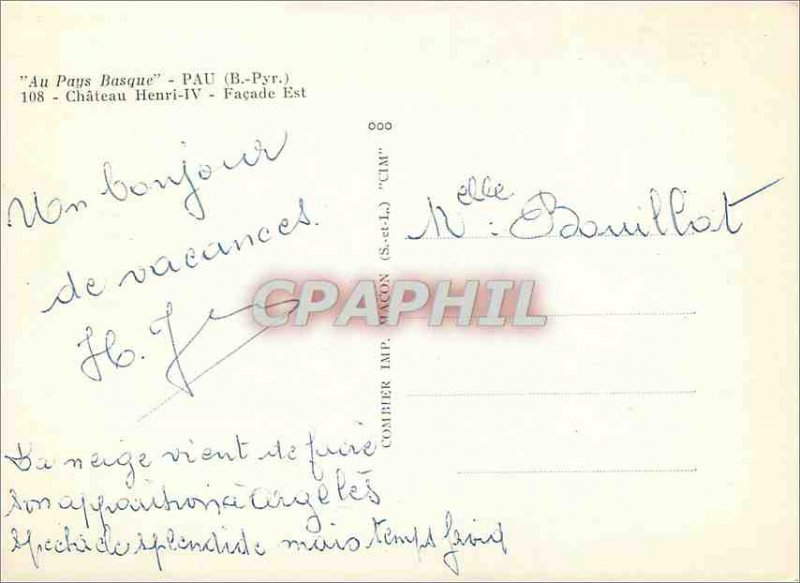 "Au Pays Basque" - PAU (B.-Pyr.)
108 - Château Henri-IV - Façade Est
Un bonjour
de vacances.
H.
La neige vient de faire
son apparition à Argelès
spectacle splendide mais temps froid
COMBIER IMP. MACON (S.-et-L.) "CIM"
Melle : Bouillot
CPAPHIL